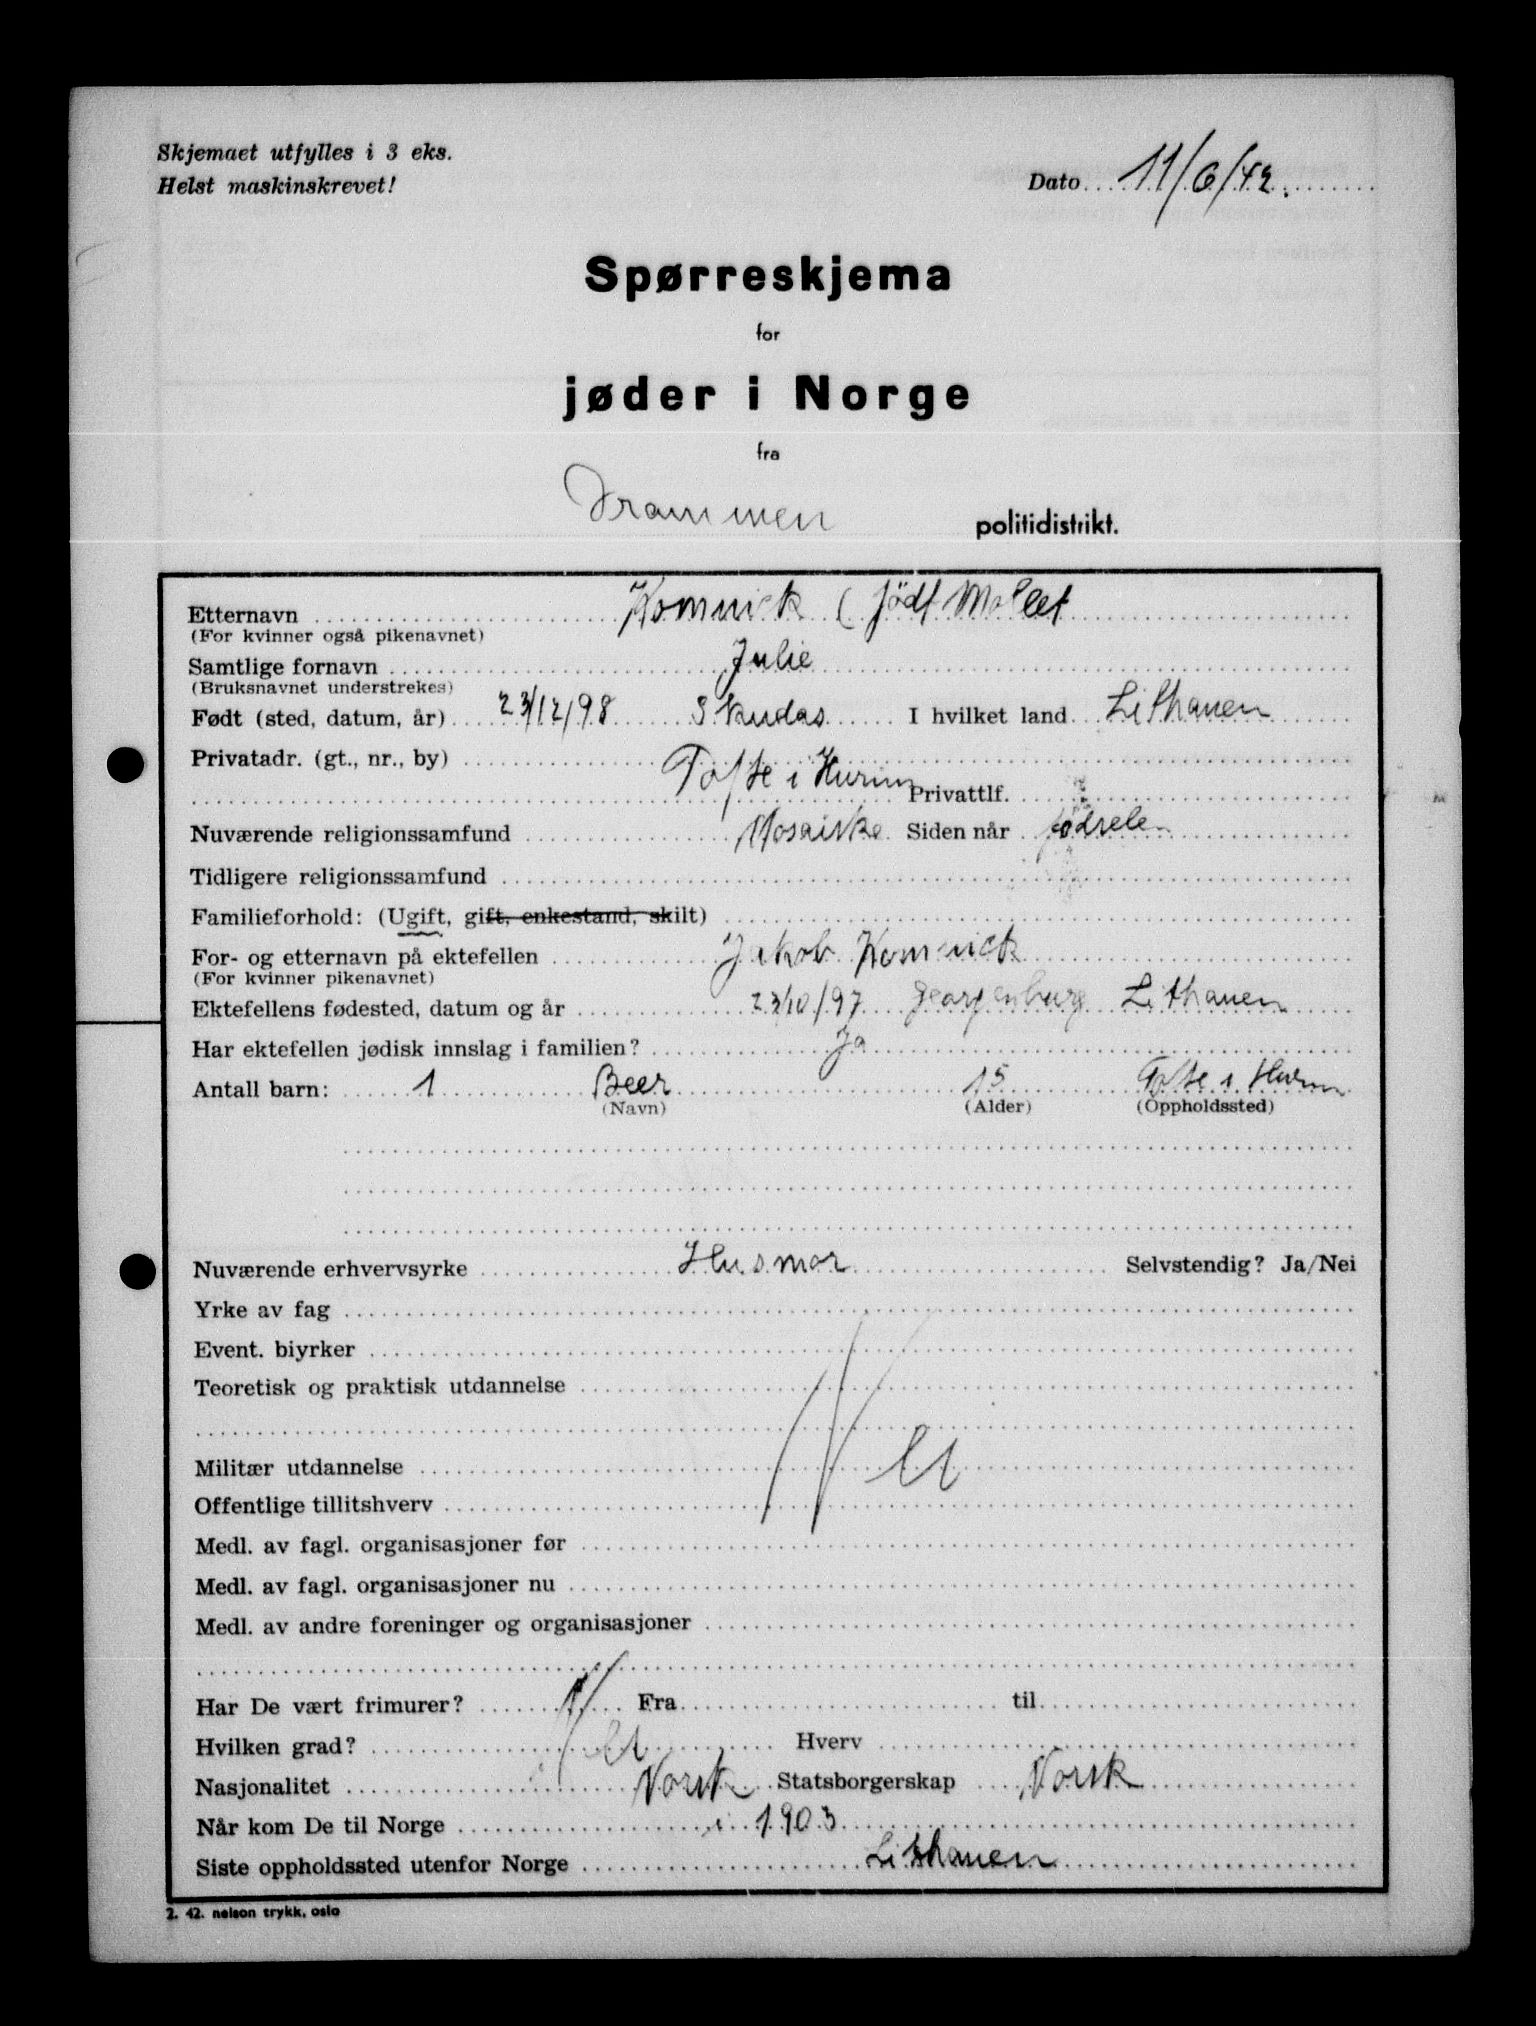 Skjemaet utfylles i 3 eks.
Helst maskinskrevet!
Dato 11/6/42.
Spørreskjema
for
jøder i Norge
fra
Drammen politidistrikt.
Etternavn Komnick (født Mollet
(For kvinner også pikenavnet)
Samtlige fornavn Julie
(Bruksnavnet understrekes)
Født (sted, datum, år) 23/12/98 Skudas I hvilket land Lithauen
Privatadr. (gt., nr., by)
Tofte i Hurum Privattlf.
Nuværende religionssamfund Mosaiske Siden når fødselen
Tidligere religionssamfund
Familieforhold: (Ugift, gift, enkestand, skilt)
For- og etternavn på ektefellen Jakob Komnick
(For kvinner pikenavnet)
Ektefellens fødested, datum og år 23/10/97 Georgenburg Lithauen
Har ektefellen jødisk innslag i familien? Ja
Antall barn: 1 Beer 15 Tofte i Hurum
(Navn) (Alder) (Oppholdssted)
Nuværende erhvervsyrke Husmor Selvstendig? Ja/Nei
Yrke av fag
Event. biyrker
Teoretisk og praktisk utdannelse
Nei
Militær utdannelse
Offentlige tillitshverv
Medl. av fagl. organisasjoner før
Medl. av fagl. organisasjoner nu
Medl. av andre foreninger og organisasjoner
Har De vært frimurer? Nei Fra til
Hvilken grad? Hverv
Nasjonalitet Norsk Statsborgerskap Norsk
Når kom De til Norge i 1903
Siste oppholdssted utenfor Norge Lithauen
2. 42. nelson trykk, oslo